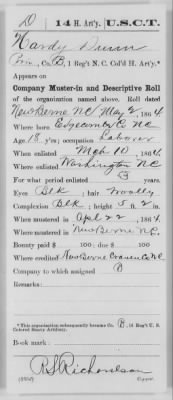 D | 14 H. Art'y. | U.S.C.T.
Hardy Dunn
Priv., Co. B, 1 Reg't N. C. Col'd H. Art'y.*
Appears on
Company Muster-in and Descriptive Roll
of the organization named above. Roll dated
New Berne NC May 2, 1864.
Where born Edgecombe Co NC
Age 18 y'rs; occupation Laborer
When enlisted Mch 10, 1864.
Where enlisted Washington NC
For what period enlisted 3 years.
Eyes Blk; hair Woolly
Complexion Blk; height 5 ft. 2 in.
When mustered in Apl 22, 1864.
Where mustered in New Berne N.C.
Bounty paid $ 100; due $ 100
Where credited New Berne Craven Co NC
Company to which assigned B
Remarks:
* This organization subsequently became Co. B, 14 Reg't U. S. Colored Heavy Artillery.
Book mark:
R S Richardson
Copyist.